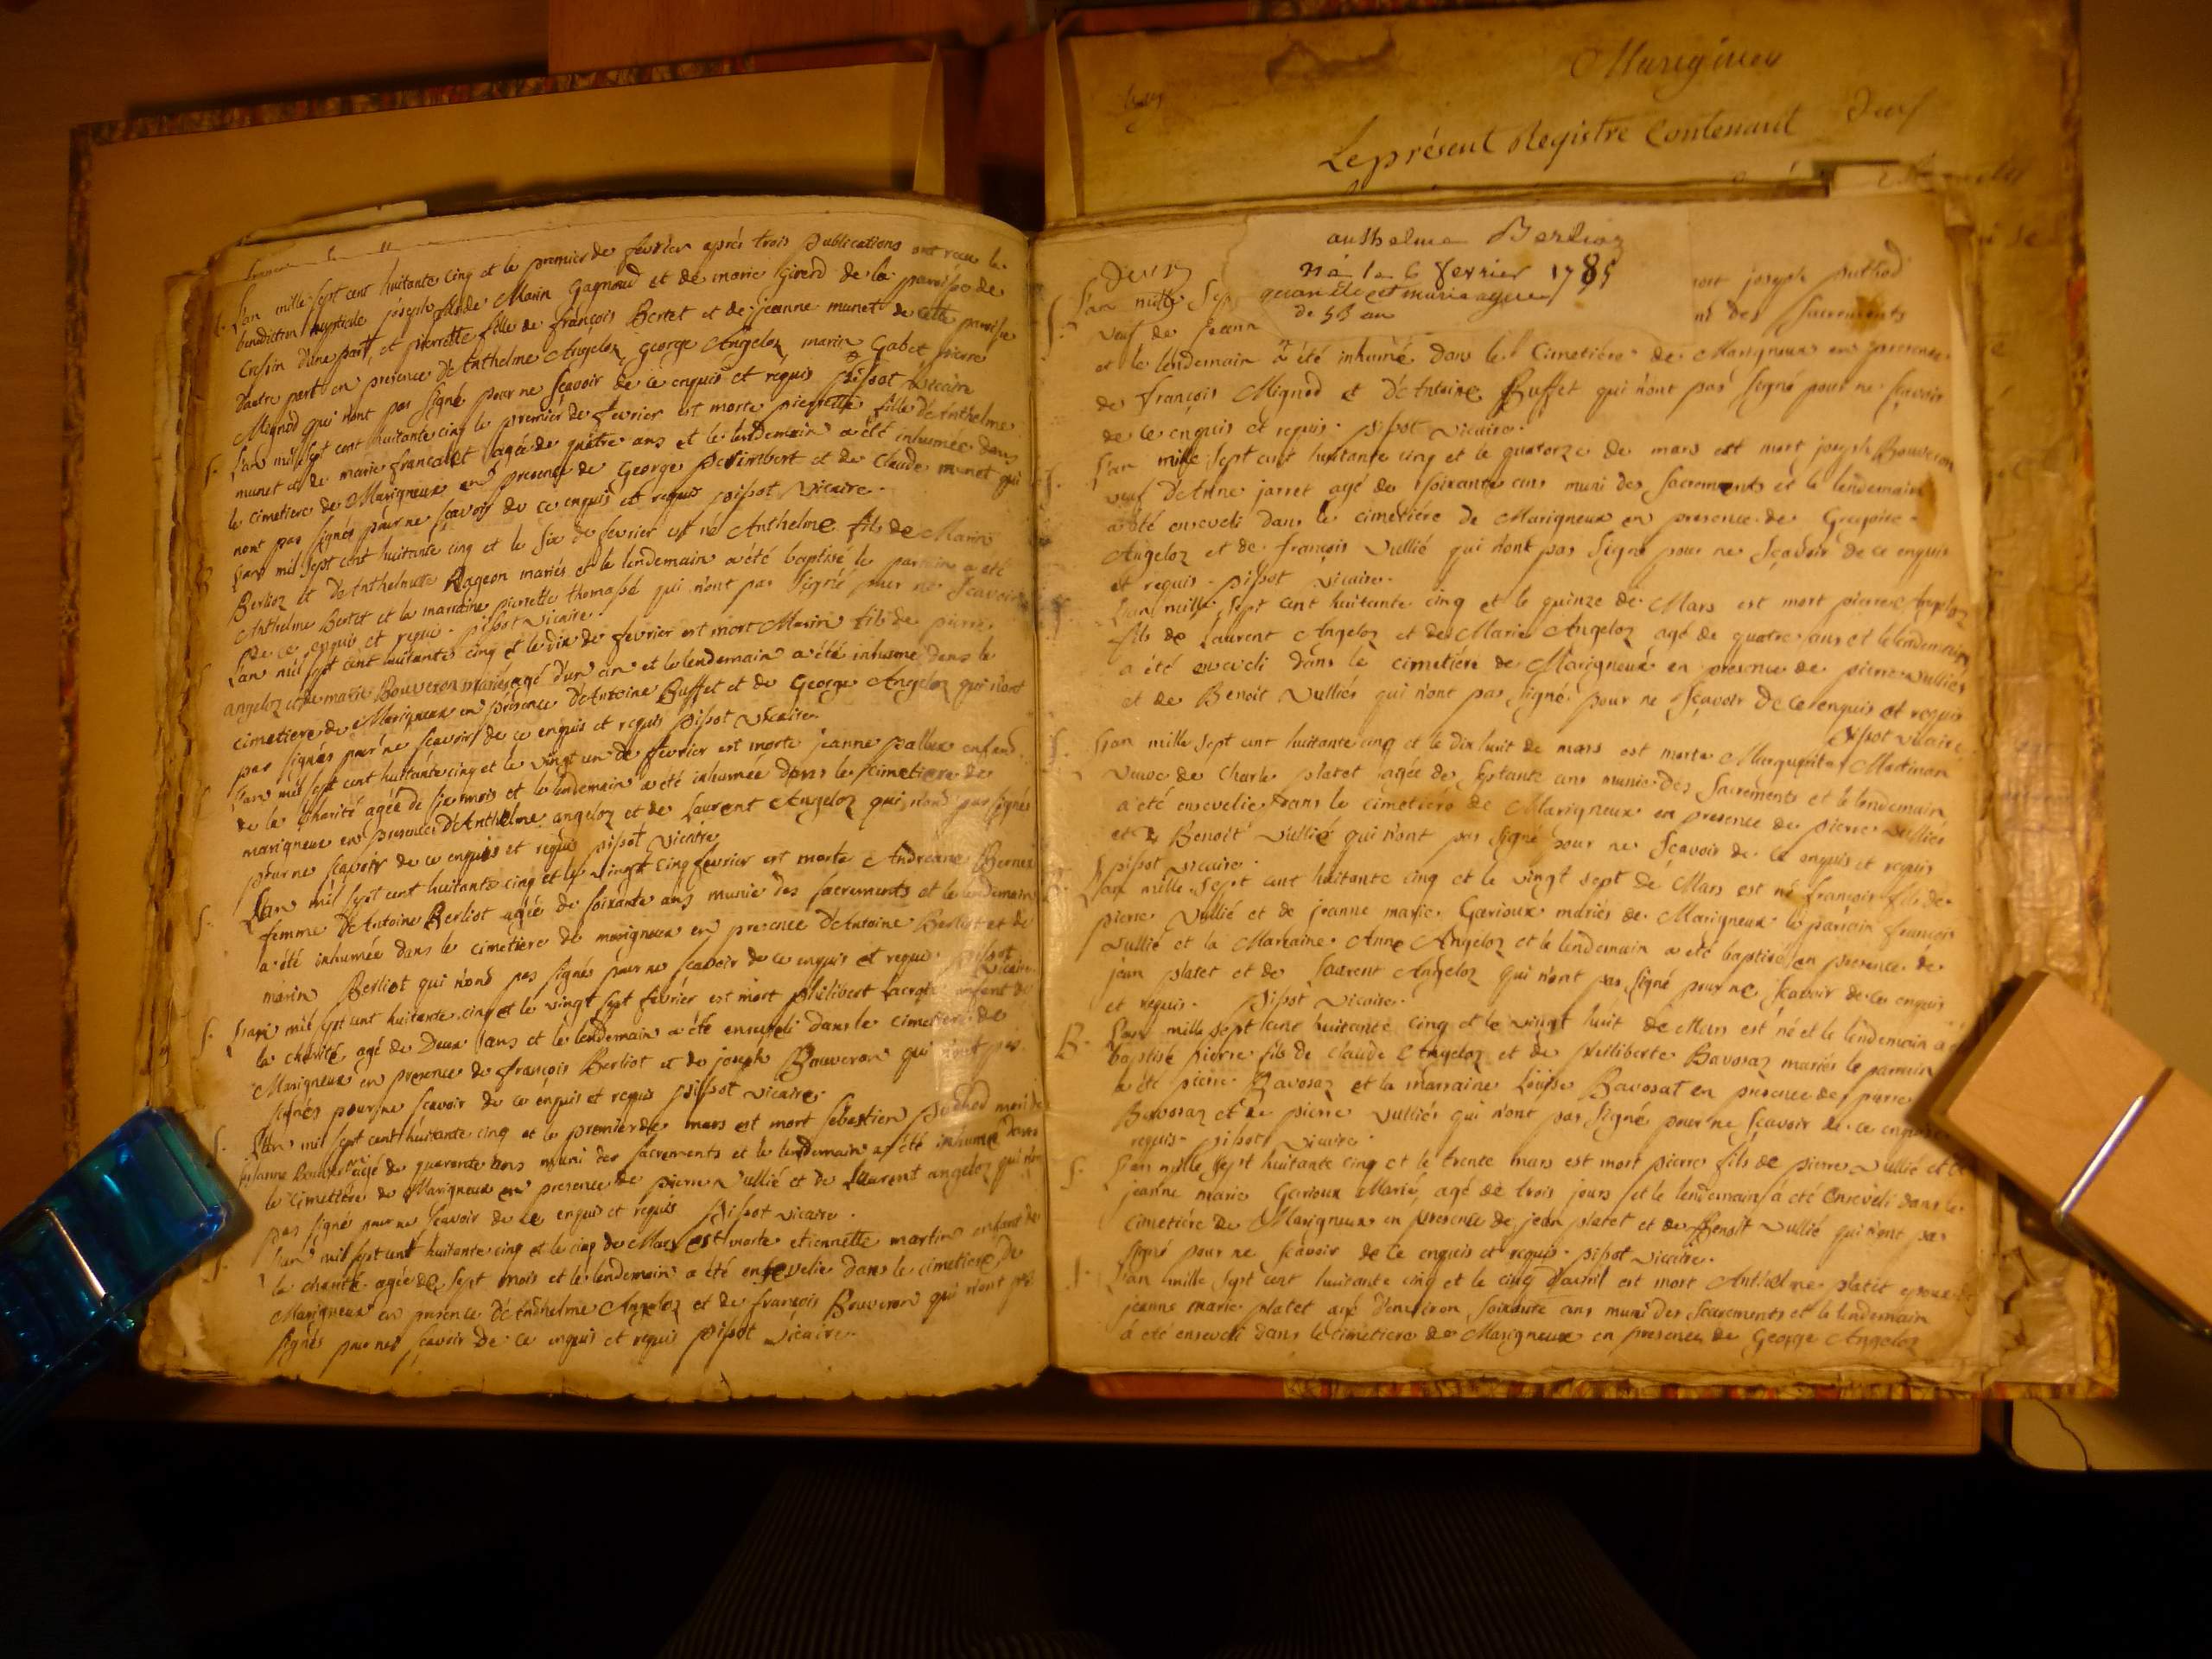 L'an mille sept cent huitante cinq et le premier de fevrier après trois publications ont receu la
benediction nuptiale joseph fils de Marin Gagnoud et de marie Girerd de la paroisse de
Cressin d'une part, et pierrette fille de françois Bertet et de jeanne munet de cette paroisse
d'autre part en presence d'Anthelme Angeloz George Angeloz marin Gabet pierre
Mignod qui n'ont pas signé pour ne sçavoir de ce enquis et requis pissot vicaire
S. L'an mil sept cent huitante cinq le premier de fevrier est morte pierrette fille d'Anthelme
munet et de marie françalet agée de quatre ans et le lendemain a été inhumée dans
le cimetiere de Marigneux en presence de George perimbert et de Claude munet qui
nont pas signés pour ne sçavoir de ce enquis et requis pissot vicaire.
L'an mil sept cent huitante cinq et le six de fevrier est né Anthelme fils de Marin
Berlioz et d'Anthelmette Rageon mariés et le lendemain a été baptisé le parrain a été
Anthelme Bertet et la marraine pierrette thomassé qui n'ont pas signé pour ne sçavoir
de ce enquis et requi. pissot vicaire.
L'an mil sept cent huitante cinq et le dix de fevrier est mort Marin fils de pierre
angeloz et de marie Bouveron mariés agé d'un an et le lendemain a été inhumé dans le
cimetiere de Marigneux en presence d'Antoine Buffet et de George Angeloz qui n'ont
pas signés pour ne sçavoir de ce enquis et requis pissot vicaire.
L'an mil sept cent huitante cinq et le vingt un de fevrier est morte jeanne enfend
de la charité agée de six mois et le lendemain a été inhumée dans le cimetiere de
marigneux en presence d'Anthelme angeloz et de Laurent Angeloz qui n'ond pas signés
pour ne sçavoir de ce enquis et requis pissot vicaire
S. L'an mil sept cent huitante cinq et le vingt cinq fevrier est morte Andreane Bernex
femme d'Antoine Berliot agée de soixante ans munie des sacrements et le lendemain
a été inhumée dans le cimetiere de marigneux en presence d'Antoine Berliot et de
marin Berliot qui n'ond pas signés pour ne sçavoir de ce enquis et requis pissot
vicaire
S. L'an mil sept cent huitante cinq et le vingt sept fevrier est mort philibert Lacroix enfent de
la charité agé de Deux ans et le lendemain a été enseveli dans le cimetiere de
Marigneux en presence de françois Berliot et de joseph Bouveron qui n'ont pas
signés pour ne sçavoir de ce enquis et requis pissot vicaire.
S. L'an mil sept cent huitante cinq et le premier de mars est mort sebastien puthod mari de
agé de quarante ans muni des sacrements et le lendemain a été inhumé dans
le cimetiere de Marigneux en presence de pierre Vullié et de Laurent angeloz qui n'ont
pas signés pour ne sçavoir de ce enquis et requis pissot vicaire.
S. L'an mil sept cent huitante cinq et le cinq de Mars est morte etiennette martin enfant de
la charité agée de sept mois et le lendemain a été ensevelie dans le cimetiere de
Marigneux en presence d'Andhelme Angeloz et de françois Bouveron qui n'ont pas
signés pour ne sçavoir de ce enquis et requis pissot vicaire.
Le présent Registre Contenant
anthelme Berlioz
né le 6 fevrier 1785
quand il c'est mariè agee
de 53 an
L'an mille Sep ort joseph puthod
veuf de jeann ni des Sacrements
et le lendemain a été inhumé dans le Cimetiére de Marigneux en presence
de françois Mignod et d'Antoine Buffet qui n'ont pas signé pour ne sçavoir
de ce enquis et requis. pissot vicaire.
S. L'an mille sept cent huitante cinq et le quatorze de mars est mort joseph Bouveron
veuf d'Anne jarret agé de soixante ans muni des sacrements et le lendemain
a été enseveli dans le cimetiére de Marigneux en presence de Gregoire
Angeloz et de françois Vullié qui n'ont pas signé pour ne sçavoir de ce enquis
et requis. pissot vicaire.
L'an mille sept cent huitante cinq et le quinze de Mars est mort pierre Angeloz
fils de Laurent Angeloz et de Marie Angeloz agé de quatre ans et le lendemain
a été enseveli dans le cimetiére de Marigneux en presence de pierre vulliés
et de Benoit Vulliés qui n'ont pas signé pour ne sçavoir de ce enquis et requis
pissot vicaire
S. L'an mille sept cent huitante cinq et le dix huit de mars est morte Marguerite Martinan
veuve de Charle platet agée de septante ans munie des Sacrements et le lendemain
a été ensevelie dans le cimetiére de Marigneux en presence de pierre vulliés
et de Benoit vullié qui n'ont pas signé pour ne sçavoir de ce enquis et requis
pissot vicaire.
L'an mille sept cent huitante cinq et le vingt sept de Mars est né françois fils de
pierre Vullié et de jeanne marie Garioux mariés de Marigneux le parrain françois
vullié et la Marraine Anne Angeloz et le lendemain a eté baptisé en presence de
jean platet et de Laurent Angeloz qui n'ont pas signé pour ne sçavoir de ce enquis
et requis. pissot vicaire.
B. L'an mille sept cent huitante cinq et le vingt huit de Mars est né et le lendemain a é
baptisé pierre fils de Claude Angeloz et de philliberte Bavosaz mariés le parrain
a été pierre Bavosaz et la marraine Louise Bavosat en presence de pierre
Bavosaz et de pierre vulliés qui n'ont pas signé pour ne sçavoir de ce enquis
requis. pissot vicaire.
S. L'an mille sept huitante cinq et le trente mars est mort pierre fils de pierre vullié et de
jeanne marie Garioux Marié, agé de trois jours et le lendemain a été enseveli dans le
cimetiére de Marigneux en presence de jean platet et de Benoit vullié qui n'ont pas
signé pour ne sçavoir de ce enquis et requis. pissot vicaire.
L'an mille sept cent huitante cinq et le cinq d'avril est mort Anthelme platet epoux de
jeanne marie platet agé d'environ soixante ans muni des Sacrements et le lendemain
á eté enseveli dans le cimetiere de Marigneux en presence de George Angeloz